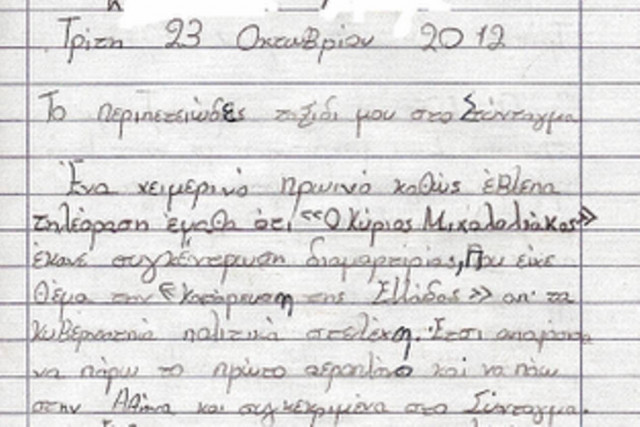 Τρίτη 23 Οκτωβρίου 2012
Το περιπετειώδες ταξίδι μου στο Σύνταγμα
Ένα χειμερινό πρωινό καθώς έβλεπα
τηλεόραση έμαθα ότι «Ο Κύριος Μιχαλολιάκος»
έκανε συγκέντρωση διαμαρτυρίας, που είχε
θέμα την «Κατάρευση της Ελλάδας» απ' τα
κυβερνητικά πολιτικά στελέχη. Έτσι αποφάσισα
να πάρω το πρώτο αεροπλάνο και να πάω
στην Αθήνα και συγκεκριμένα στο Σύνταγμα.